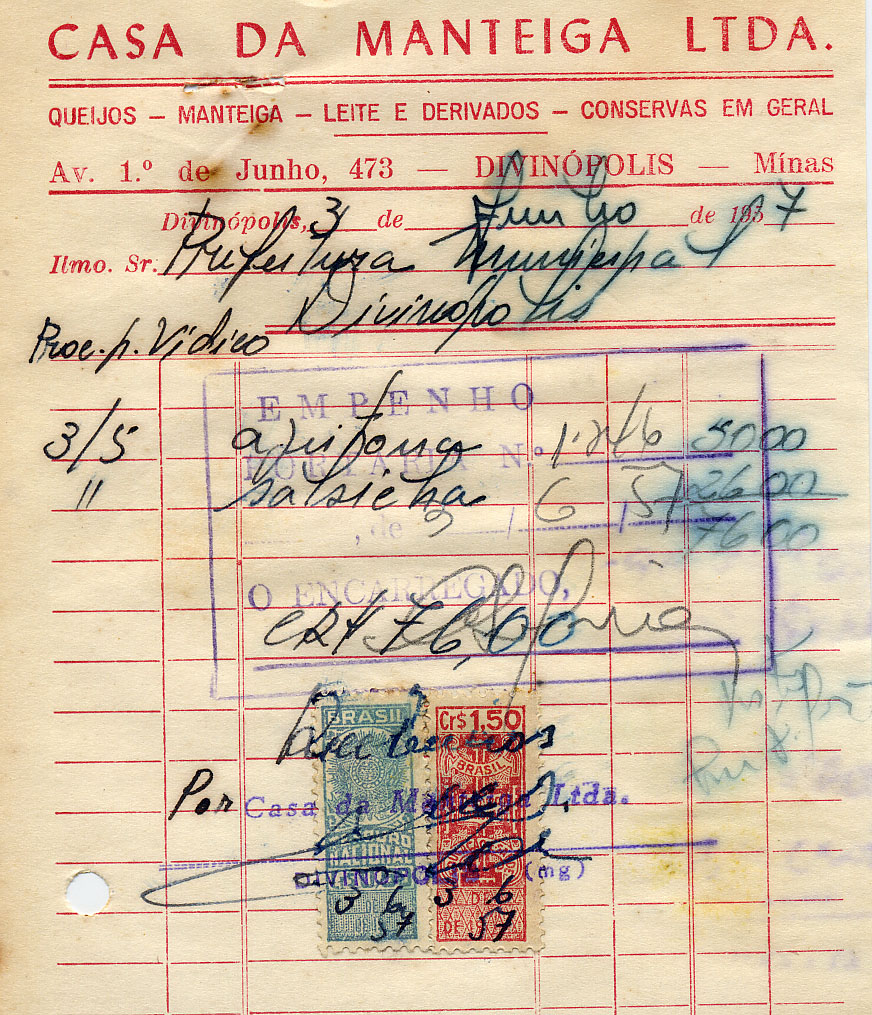 CASA DA MANTEIGA LTDA.
QUEIJOS — MANTEIGA — LEITE E DERIVADOS — CONSERVAS EM GERAL
Av. 1.º de Junho, 473 — DIVINÓPOLIS — Minas
Divinópolis, 3 de Junho de 1957
Ilmo. Sr. Prefeitura Municipal
Divinopolis
Proc. p. Vidico
EMPENHO
3/5 50 00
PORTARIA N.º 1.246
" salsicha 26 00
, de 3 / 6 / 57
76 00
O ENCARREGADO,
CR$ 76,00
BRASIL Cr$ 1,50
Recebemos
BRASIL
Por Casa da Manteiga Ltda.
TESOURO
NACIONAL
DIVINOPOLIS (mg)
3 6 3 6
57 57